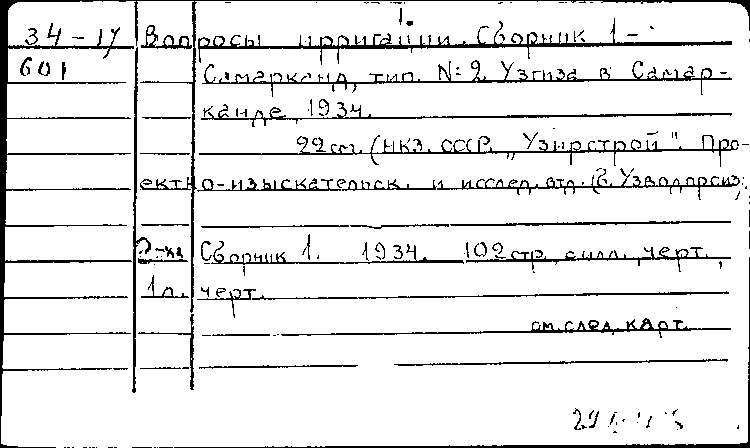 1.
34-17 Вопросы ирригации. Сборник 1-
601 Самарканд, тип. № 2 Узгиза в Самар-
канде, 1934.
22 см. (НКЗ. СССР. „Узирстрой". Про-
ектно-изыскательск. и исслед. отд. (б.
Сборник 1. 1934. 102 стр. с илл., черт.,
1 л. черт.
см. след. карт.